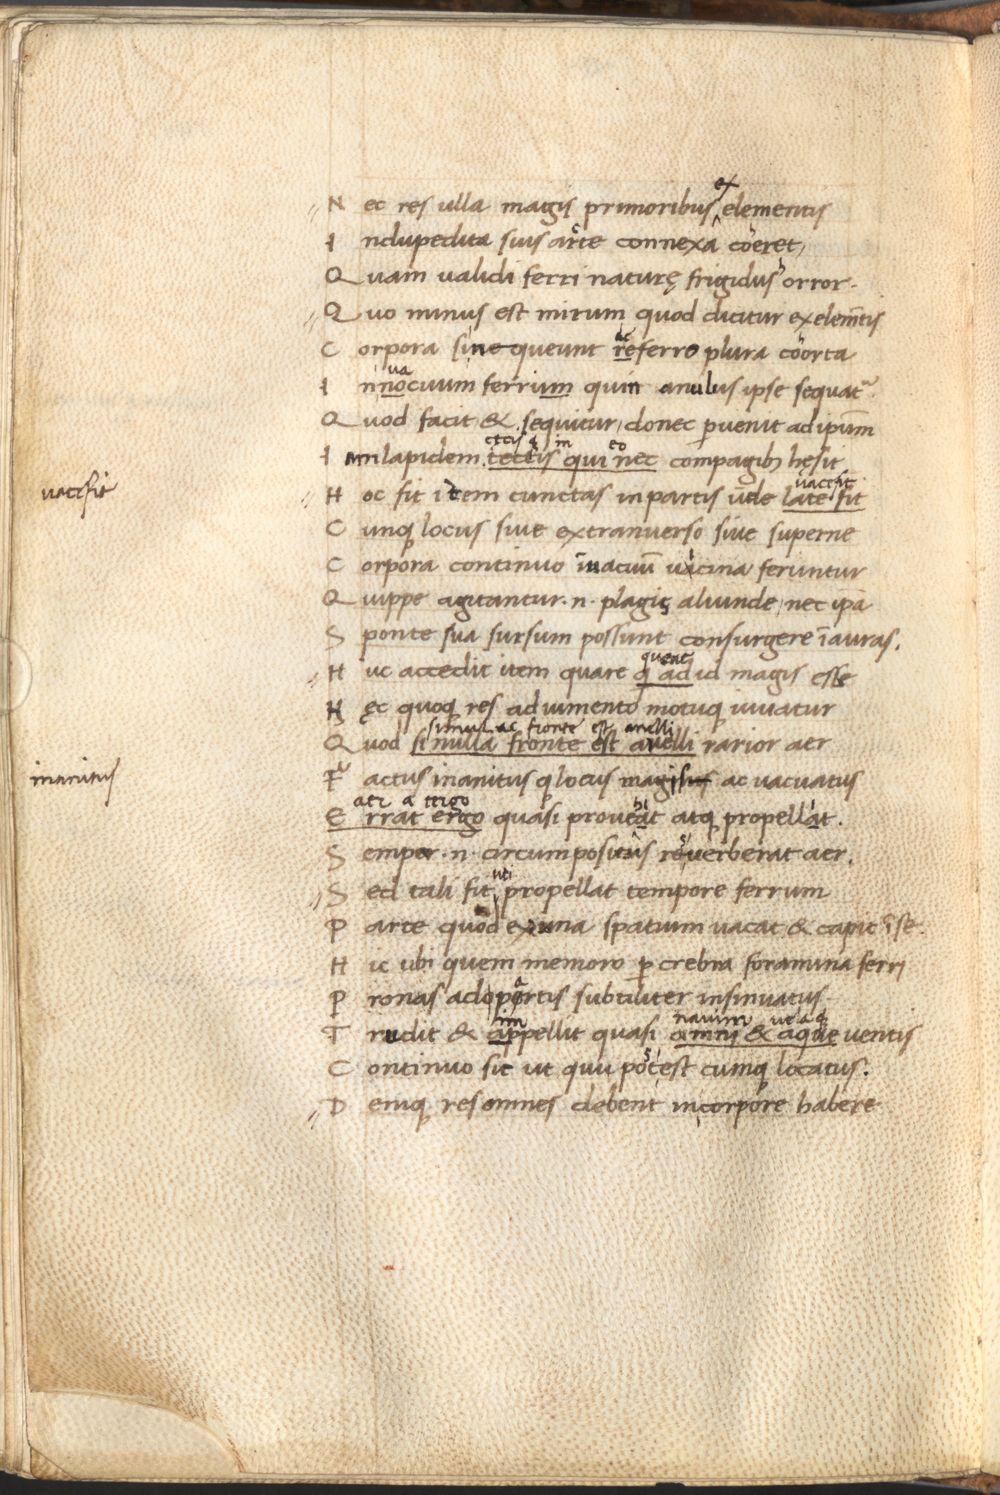 ex
Nec res ulla magis primoribus elementis
Indupedita suis arte connexa coeret,
Quam validi ferri naturę frigidus orror.
Quo minus est mirum quod dicitur ex elem̄tis
Corpora sine queunt referro plura coorta
va
In nocuum ferrium quin anulus ipse sequat
Quod facit & sequitur, donec puenit ad ipsum̄
cecis q in eo
Iam lapidem tectis qui nec compagib hęsit
vacefit
vacefit
Hoc fit item cunctas in partis ude late fit
Cunq locus sive ex tranverso sive superne
Corpora continuo in acuū vicina feruntur
Quippe agitantur .n. plagis aliunde, nec ipā
Sponte sua sursum possunt consurgere ī auras.
queat
Huc accedit item quare q ad id magis esse
Hęc quoq res adiumento motuq iuvatur
simul ac fronte est anelli
Quod si nulla fronte est avelli rarior aer
inanitus
Factus inanitus q locus magis ac vacuatus
aer a tergo
Errat ergo quasi proveat atq propellat.
Semper .n. circumpositus reverberat aer.
uti
Sed tali fit propellat tempore ferrum
Parte quod ex una spatium vacat & capit ī se.
Hic ubi quem memoro p crebra foramina ferri
Pronas ad portis subtiliter insinuatus.
navim
Trudit & appellit quasi amnii & aque ventis
Continuo sit ut qui potest cumq locatus.
Deniq res omnes debent in corpore habere